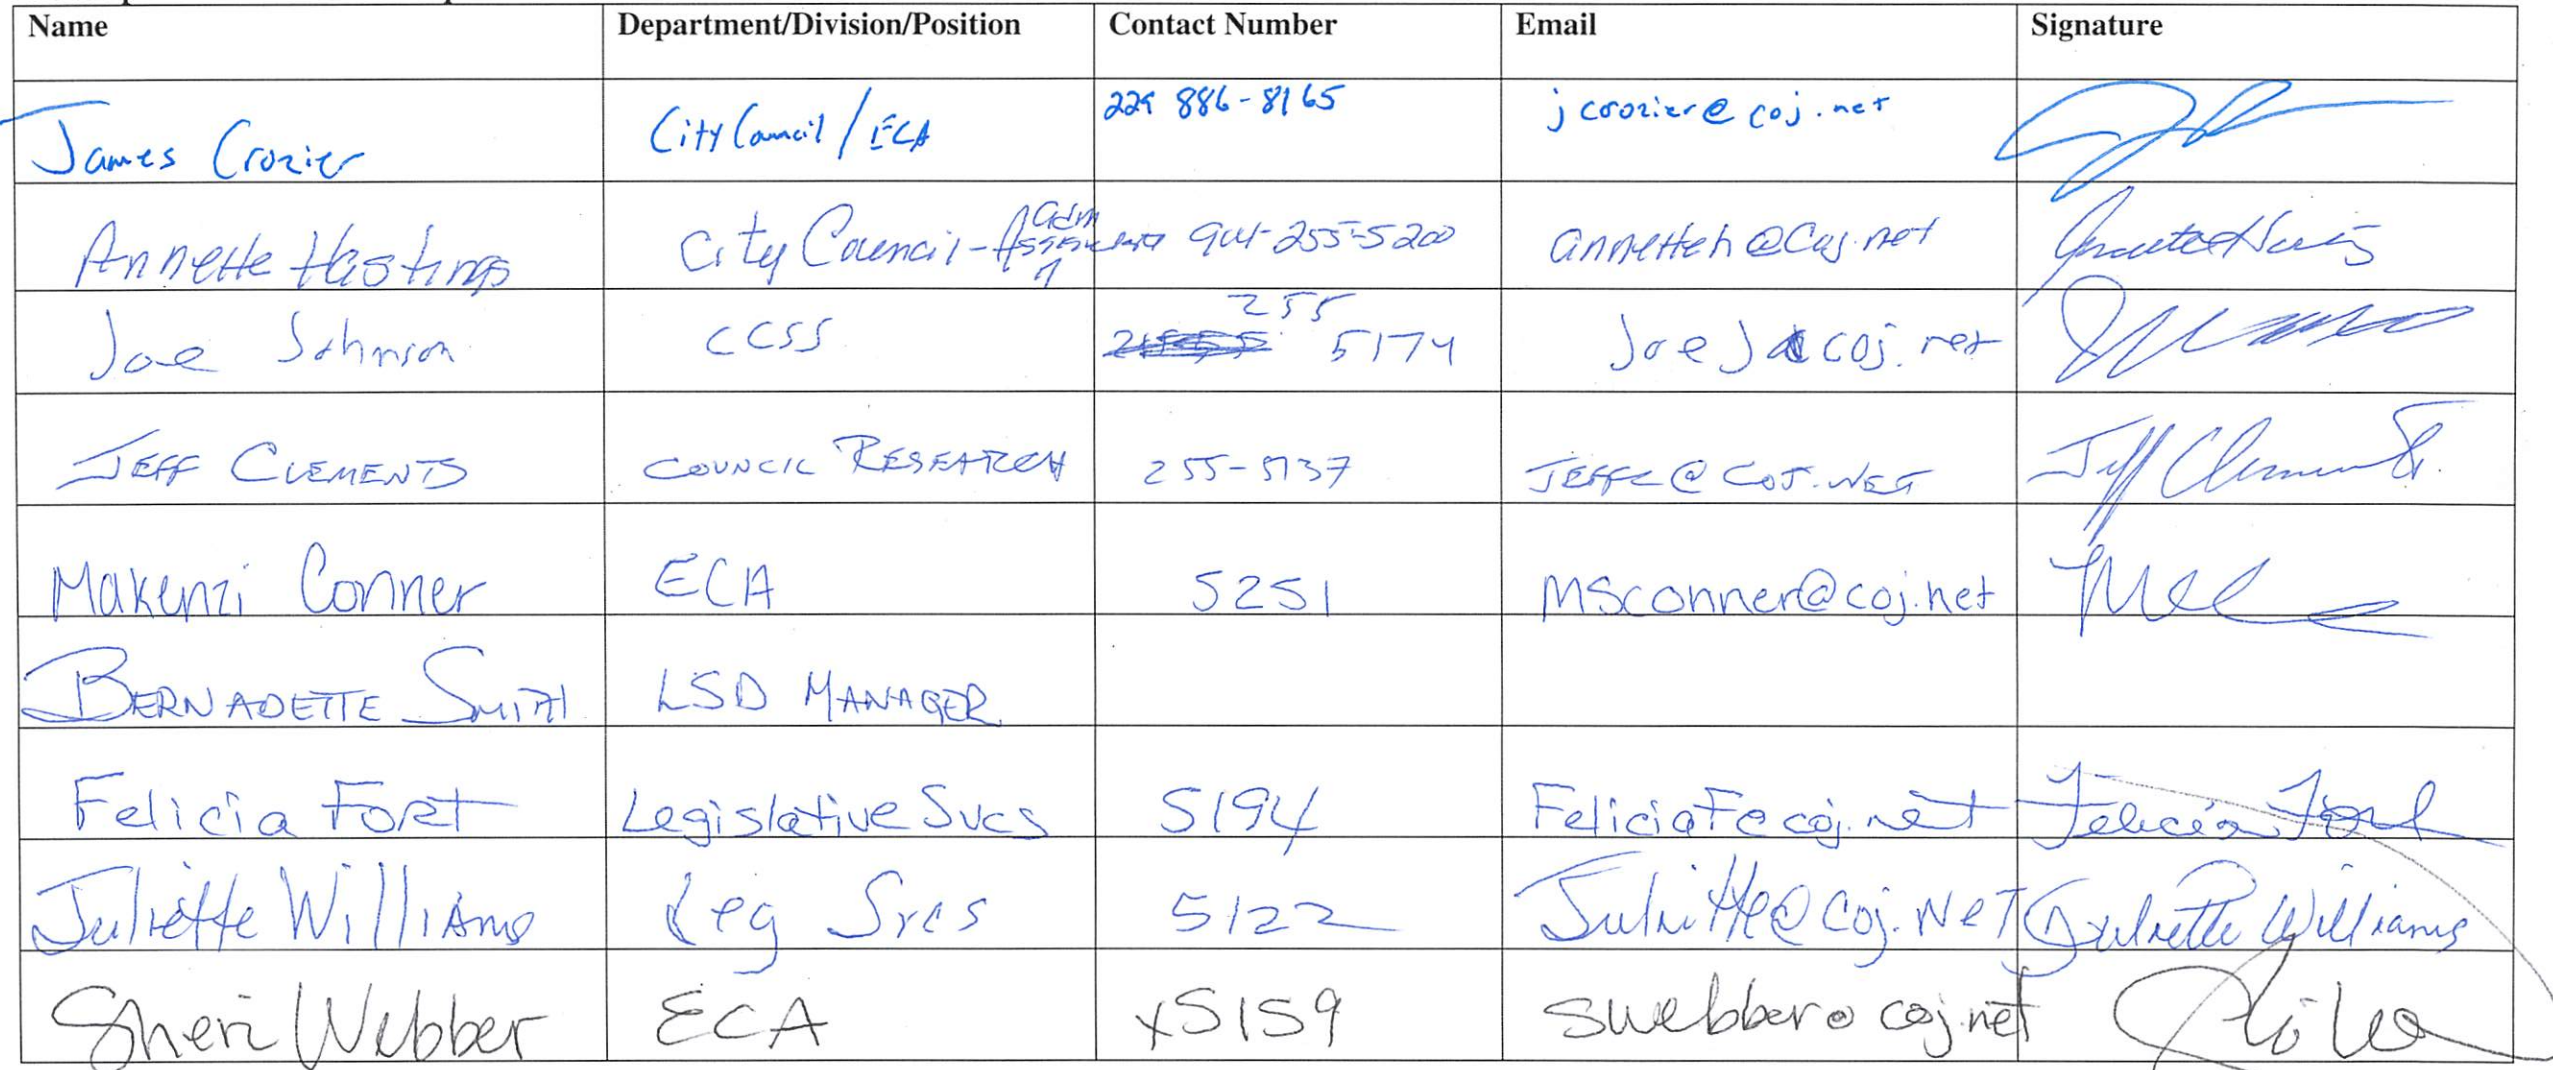 Name Department/Division/Position Contact Number Email Signature
James Crozier City Council / ECA 229 886-8165 jcrozier@coj.net
Annette Hastings City Council - Adm 904-255-5200 annetteh@coj.net
255
Joe Johnson CCSS 5174 JoeJ@coj.net
JEFF CLEMENTS COUNCIL RESEARCH 255-5137 JEFFC@COJ.NET Jeff Clements
Makenzi Conner ECA 5251 MSconner@coj.net
BERNADETTE SMITH LSD MANAGER
Felicia Fort Legislative Svcs 5194 FeliciaF@coj.net Felicia Fort
Juliette Williams Leg Svcs 5122 Juliette@coj.NET Juliette Williams
Sheri Webber ECA x5159 swebber@coj.net